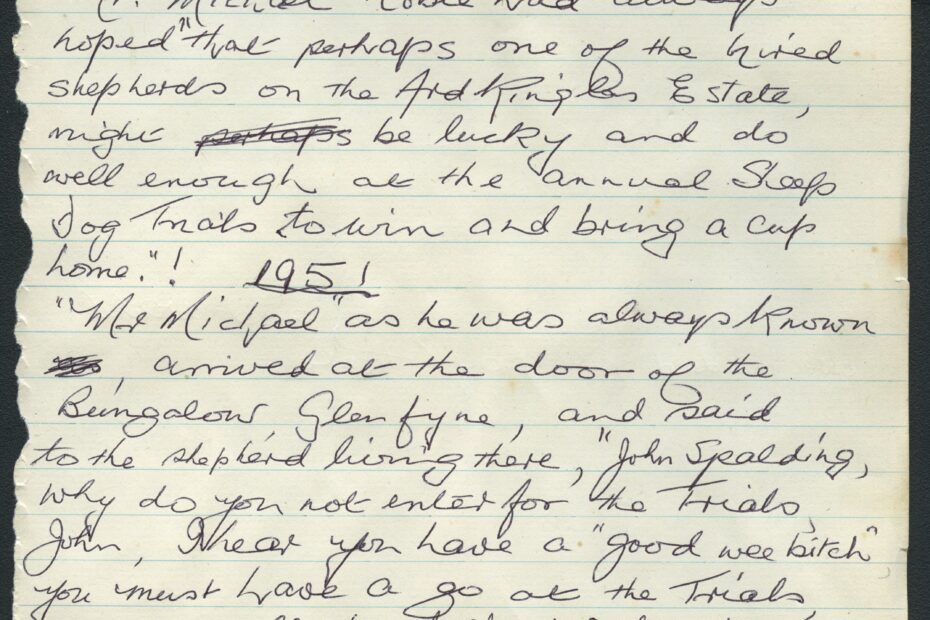 Michael Noble had always
hoped "that perhaps one of the hired
shepherds on the ArdKinglas Estate,
might perhaps be lucky and do
well enough at the annual Sheep
Dog Trials to win and bring a cup
home."!  1951
"Mr Michael" as he was always known
, arrived at the door of the
Bungalow, Glenfyne, and said
to the shepherd living there, "John Spalding,
why do you not enter for the Trials,
John, I hear you have a "good wee bitch"
you must have a go at the Trials,